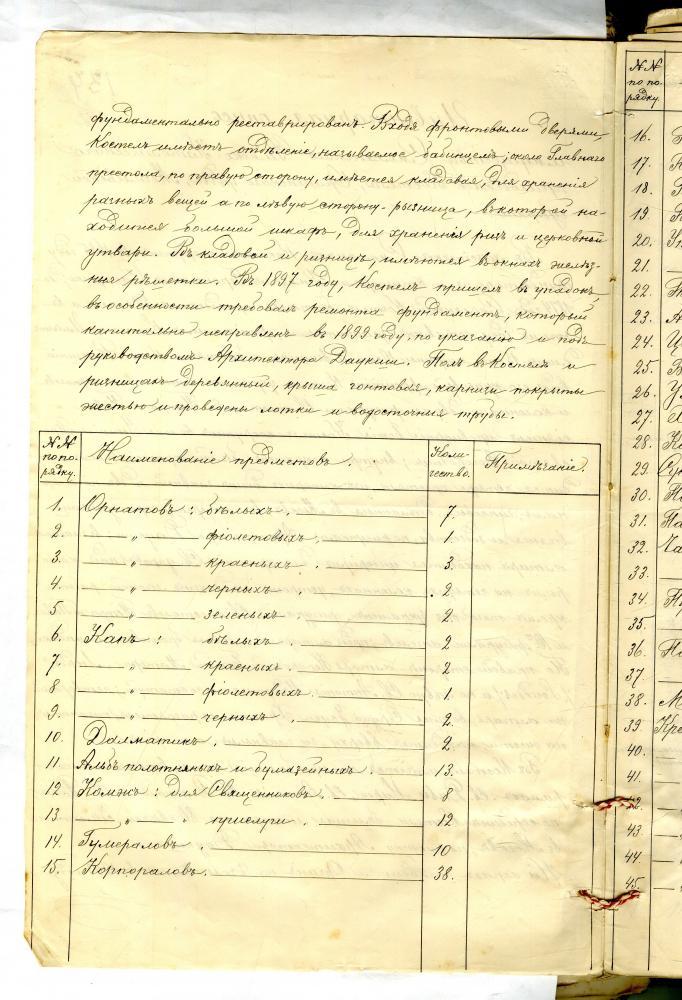 фундаментально реставрированъ. Входя фронтовыми дверями,
Костелъ имѣетъ отдѣленіе, называемое бабинцемъ; около Главнаго
престола, по правую сторону, имѣется кладовая, для храненія
разныхъ вещей а по лѣвую сторону - рызница, въ которой на-
ходится большой шкафъ, для храненія ризъ и церковной
утвари. Въ кладовой и ризницѣ, имѣются въ окнахъ желѣз-
ныя рѣшетки. Въ 1897 году, Костелъ пришелъ въ упадокъ,
въ особенности требовалъ ремонта фундаментъ, который
капитально исправленъ въ 1899 году, по указанію и подъ
руководствомъ Архитектора Даукши. Полъ въ Костелѣ и
ризницахъ деревянный, крыша гонтовая, карнизы покрыты
жестью и проведены лотки и водосточныя трубы.
№№ по по-рядку. Наименованіе предметовъ. Коли-чество. Примѣчаніе.
1. Орнатовъ: бѣлыхъ. 7.
2. „ фіолетовыхъ. 1.
3. „ красныхъ. 3.
4. „ черныхъ. 2
5 „ зеленыхъ. 2.
6. Капъ: бѣлыхъ. 2
7. „ красныхъ. 2
8 „ фіолетовыхъ. 1.
9. „ черныхъ. 2.
10. Далматикъ. 2.
11. Альбъ полотняныхъ и бумазейныхъ. 13.
12. Комжъ: для Священниковъ. 8
13. „ „ прислуги. 12
14. Гумераловъ. 10
15. Корпораловъ. 38.
№№
по по-
рядку.
16.
17.
18.
19.
20.
21.
22.
23.
24.
25.
26.
27.
28.
29.
30.
31.
32.
33.
34.
35.
36.
37.
38.
39.
40.
41.
42.
43.
44.
45.